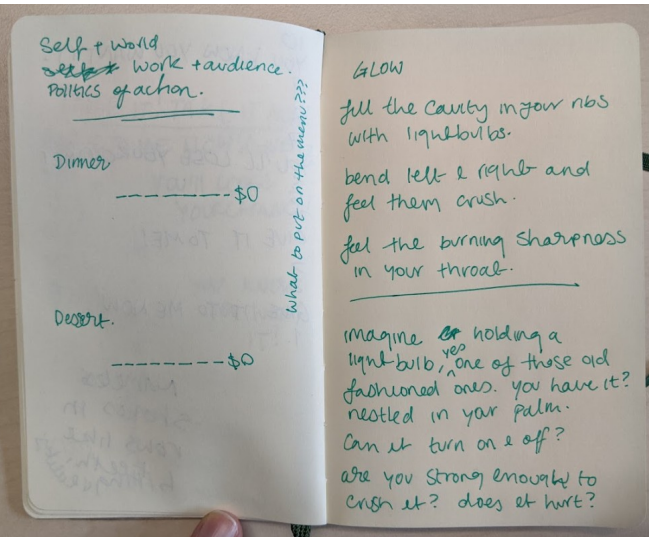 Self + world
work + audience.
Politics of action.
Dinner
--------$0
Dessert.
--------$0
what to put on the menu???
GLOW
fill the cavity in your ribs
with lightbulbs.
bend left & right and
feel them crush.
feel the burning sharpness
in your throat.
imagine holding a
lightbulb, yes one of those old
fashioned ones. you have it?
nestled in your palm.
can it turn on & off?
are you strong enough to
crush it? does it hurt?